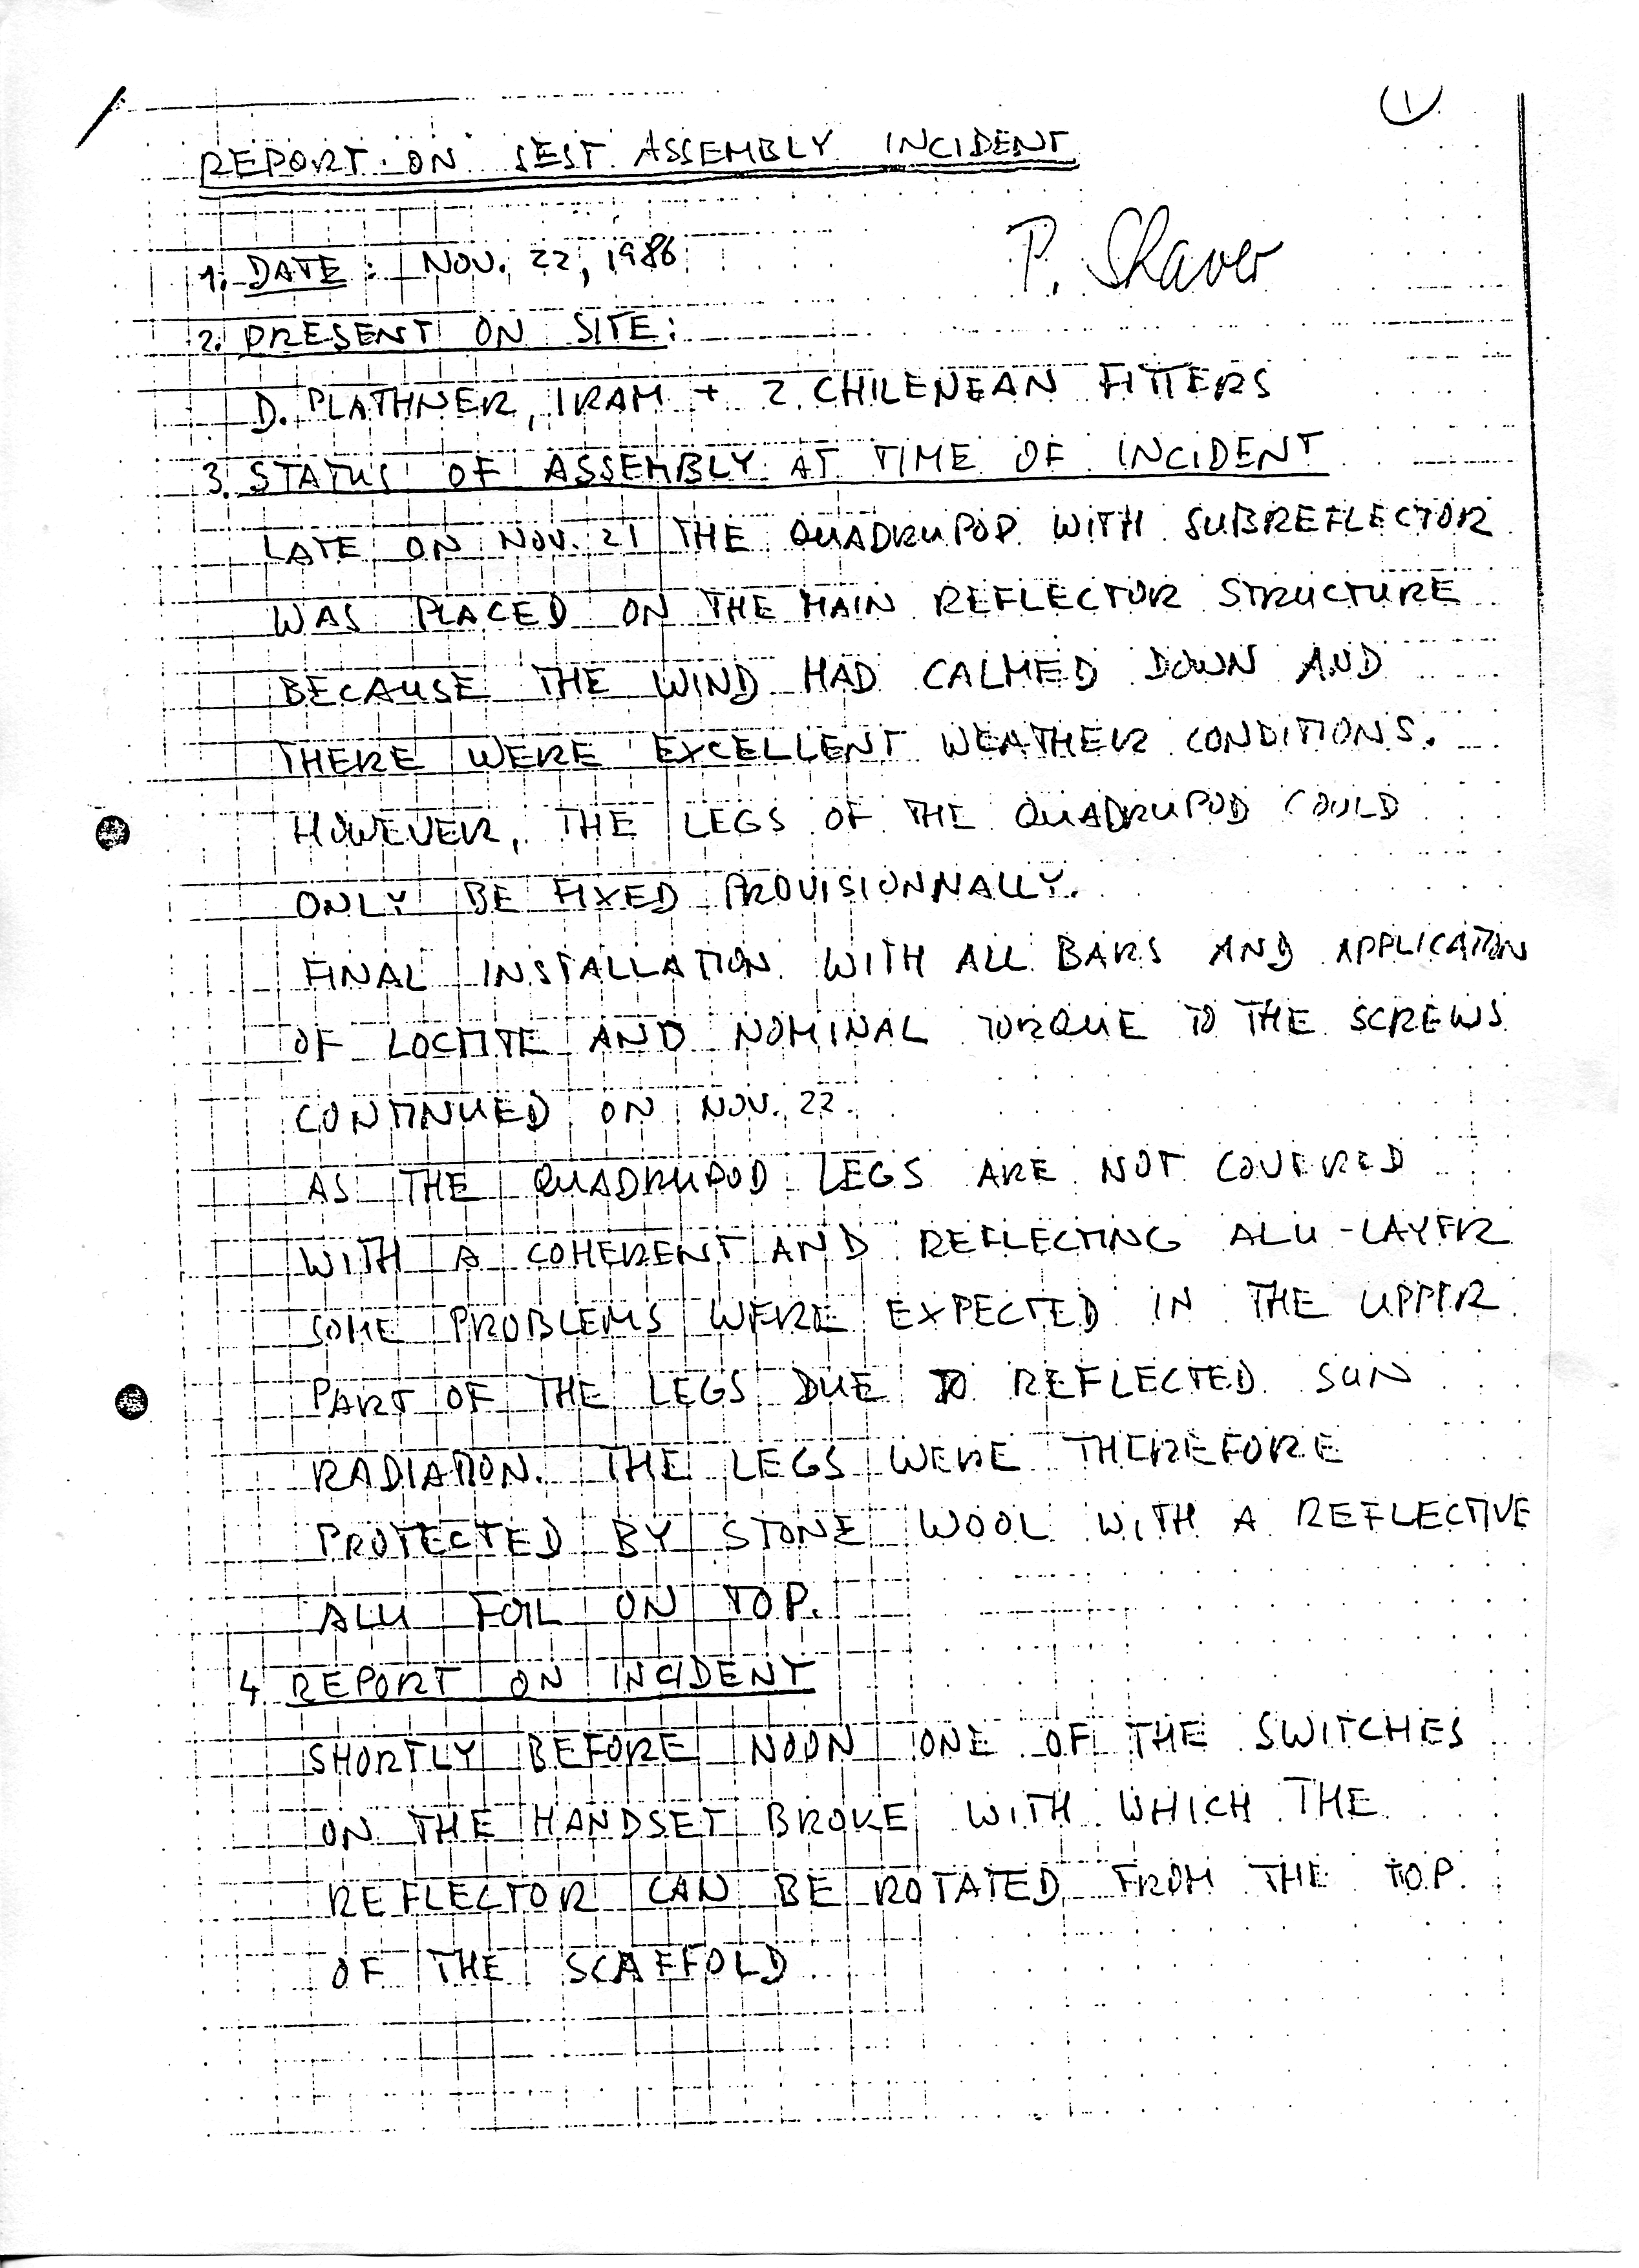 1
REPORT ON SEST ASSEMBLY INCIDENT
P. Shaver
1. DATE: NOV. 22, 1986
2. PRESENT ON SITE:
D. PLATHNER, IRAM + 2 CHILENEAN FITTERS
3. STATUS OF ASSEMBLY AT TIME OF INCIDENT
LATE ON NOV. 21 THE QUADRUPOD WITH SUBREFLECTOR
WAS PLACED ON THE MAIN REFLECTOR STRUCTURE
BECAUSE THE WIND HAD CALMED DOWN AND
THERE WERE EXCELLENT WEATHER CONDITIONS.
HOWEVER, THE LEGS OF THE QUADRUPOD COULD
ONLY BE FIXED PROVISIONNALLY.
FINAL INSTALLATION WITH ALL BARS AND APPLICATION
OF LOCTITE AND NOMINAL TORQUE TO THE SCREWS
CONTINUED ON NOV. 22.
AS THE QUADRUPOD LEGS ARE NOT COVERED
WITH A COHERENT AND REFLECTING ALU-LAYER
SOME PROBLEMS WERE EXPECTED IN THE UPPER
PART OF THE LEGS DUE TO REFLECTED SUN
RADIATION. THE LEGS WERE THEREFORE
PROTECTED BY STONE WOOL WITH A REFLECTIVE
ALU FOIL ON TOP.
4. REPORT ON INCIDENT
SHORTLY BEFORE NOON ONE OF THE SWITCHES
ON THE HANDSET BROKE WITH WHICH THE
REFLECTOR CAN BE ROTATED FROM THE TOP
OF THE SCAFFOLD